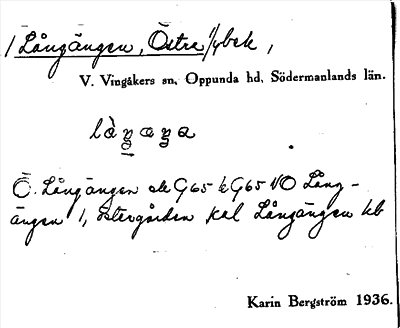 1 Långängen, Östra 1/4 bek,
V. Vingåkers sn, Oppunda hd, Södermanlands län.
làŋaŋa
Ö. Långängen ek G65 k G65 NO Lång-
ängen 1, Östergården kal Långängen kb
Karin Bergström 1936.